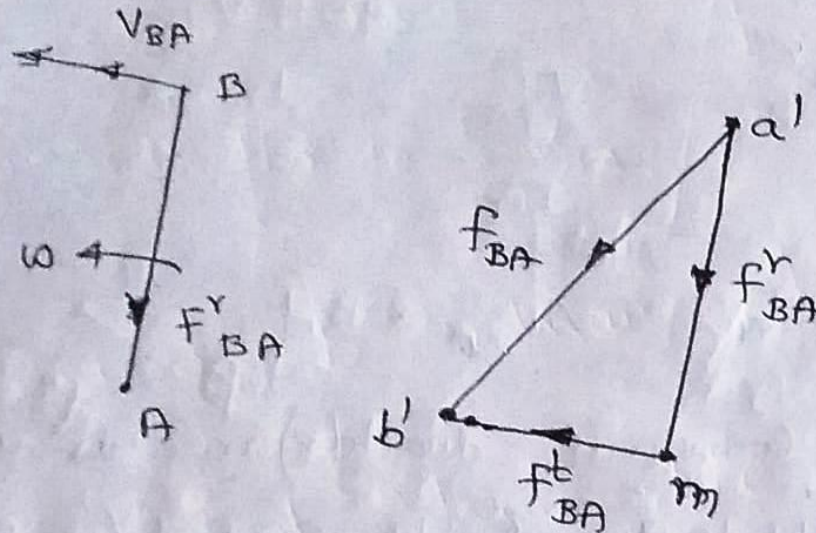 V_BA
B
ω
F^r_BA
A
a'
f_BA
f^r_BA
b'
f^t_BA
m